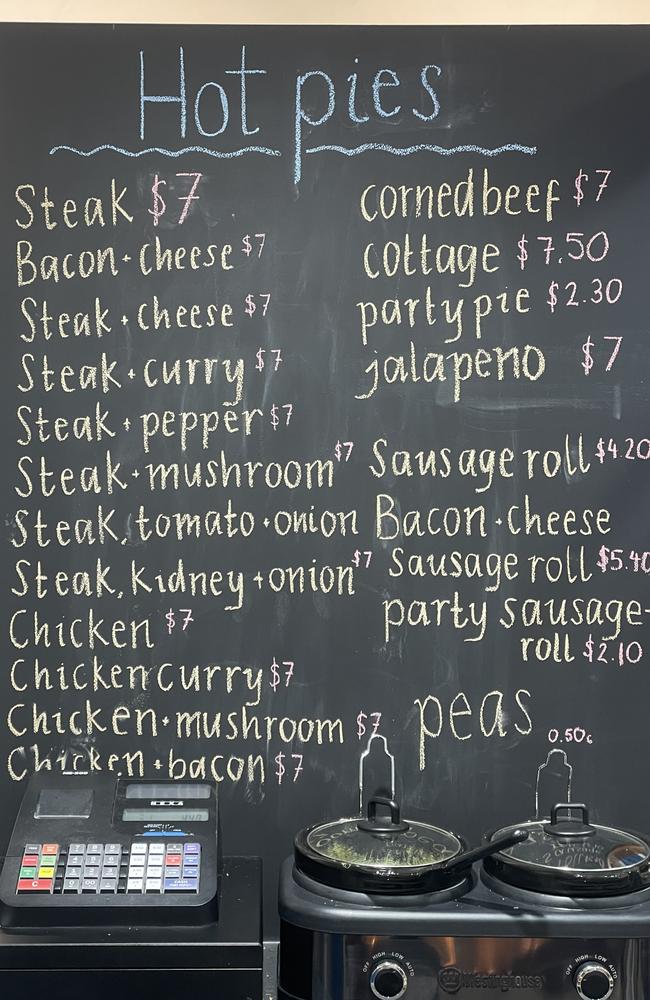 Hot pies
Steak $7
Bacon + cheese $7
Steak + cheese $7
Steak + curry $7
Steak + pepper $7
Steak + mushroom $7
Steak, tomato + onion
Steak, kidney + onion $7
Chicken $7
Chicken curry $7
Chicken + mushroom $7
Chicken + bacon $7
corned beef $7
cottage $7.50
party pie $2.30
jalapeno $7
Sausage roll $4.20
Bacon + cheese
Sausage roll $5.40
party sausage-
roll $2.10
peas 0.50c
OFF HIGH LOW AUTO
Westinghouse
OFF HIGH LOW AUTO